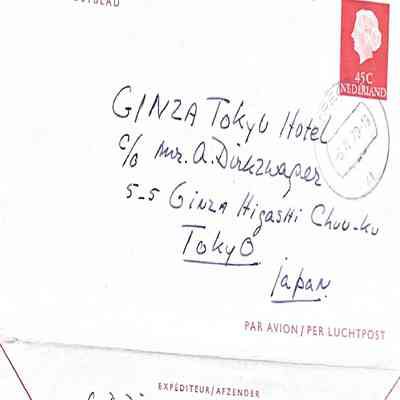 45C
NEDERLAND
GINZA Tokyu Hotel
c/o Mr. A. Dirkzwager
5-5 Ginza Higashi Chuu-ku
Tokyo
Japan
PAR AVION/PER LUCHTPOST
EXPÉDITEUR/AFZENDER